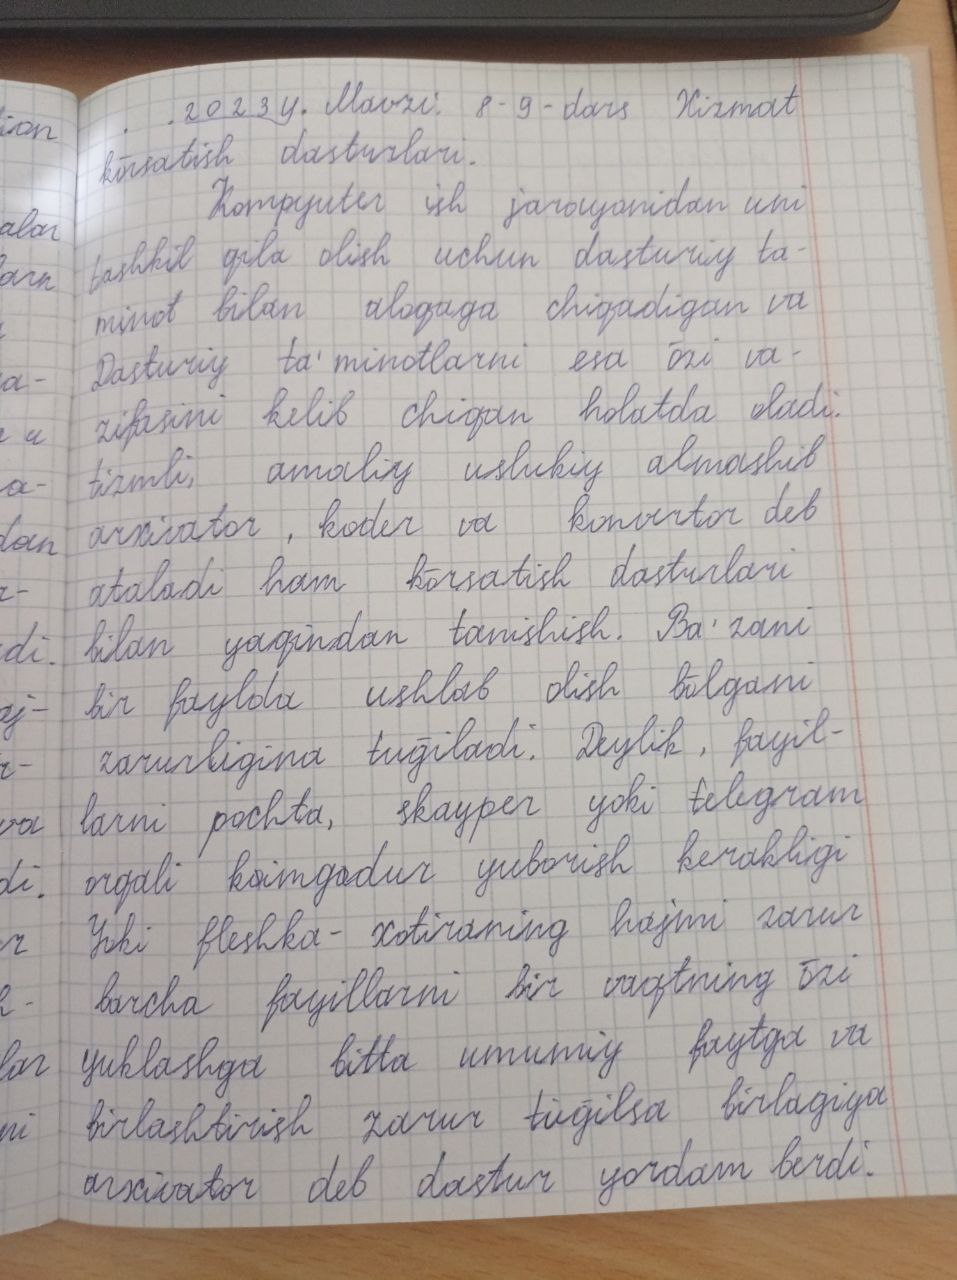 . .2023y. Mavzi. 8-9-dars Xizmat
kōrsatish dasturlari.
Kompyuter ish jarayonidan uni
tashkil qila olish uchun dasturiy ta-
minot bilan aloqaga chiqadigan va
Dasturiy ta'minotlarni esa ōzi va-
zifasini kelib chiqan holatda oladi.
tizmli, amaliy uslukiy almashib
arxivator, koder va konvertor deb
ataladi ham kōrsatish dasturlari
bilan yaqindan tanishish. Ba'zani
bir faylda ushlab olish bōlgani
zarurligina tuğiladi. Deylik, fayil-
larni pochta, skayper yoki telegram
orqali koimgadur yuborish kerakligi
Yoki fleshka-xotiraning hajmi zarur
barcha fayillarni bir vaqtning ōzi
yuklashga bitta umumiy faytga va
birlashtirish zarur tuğilsa birlagiya
arxivator deb dastur yordam berdi.
lion
alar
larn
a-
a-
dan
r-
di.
aj-
r-
va
di.
er
h-
lar
ni